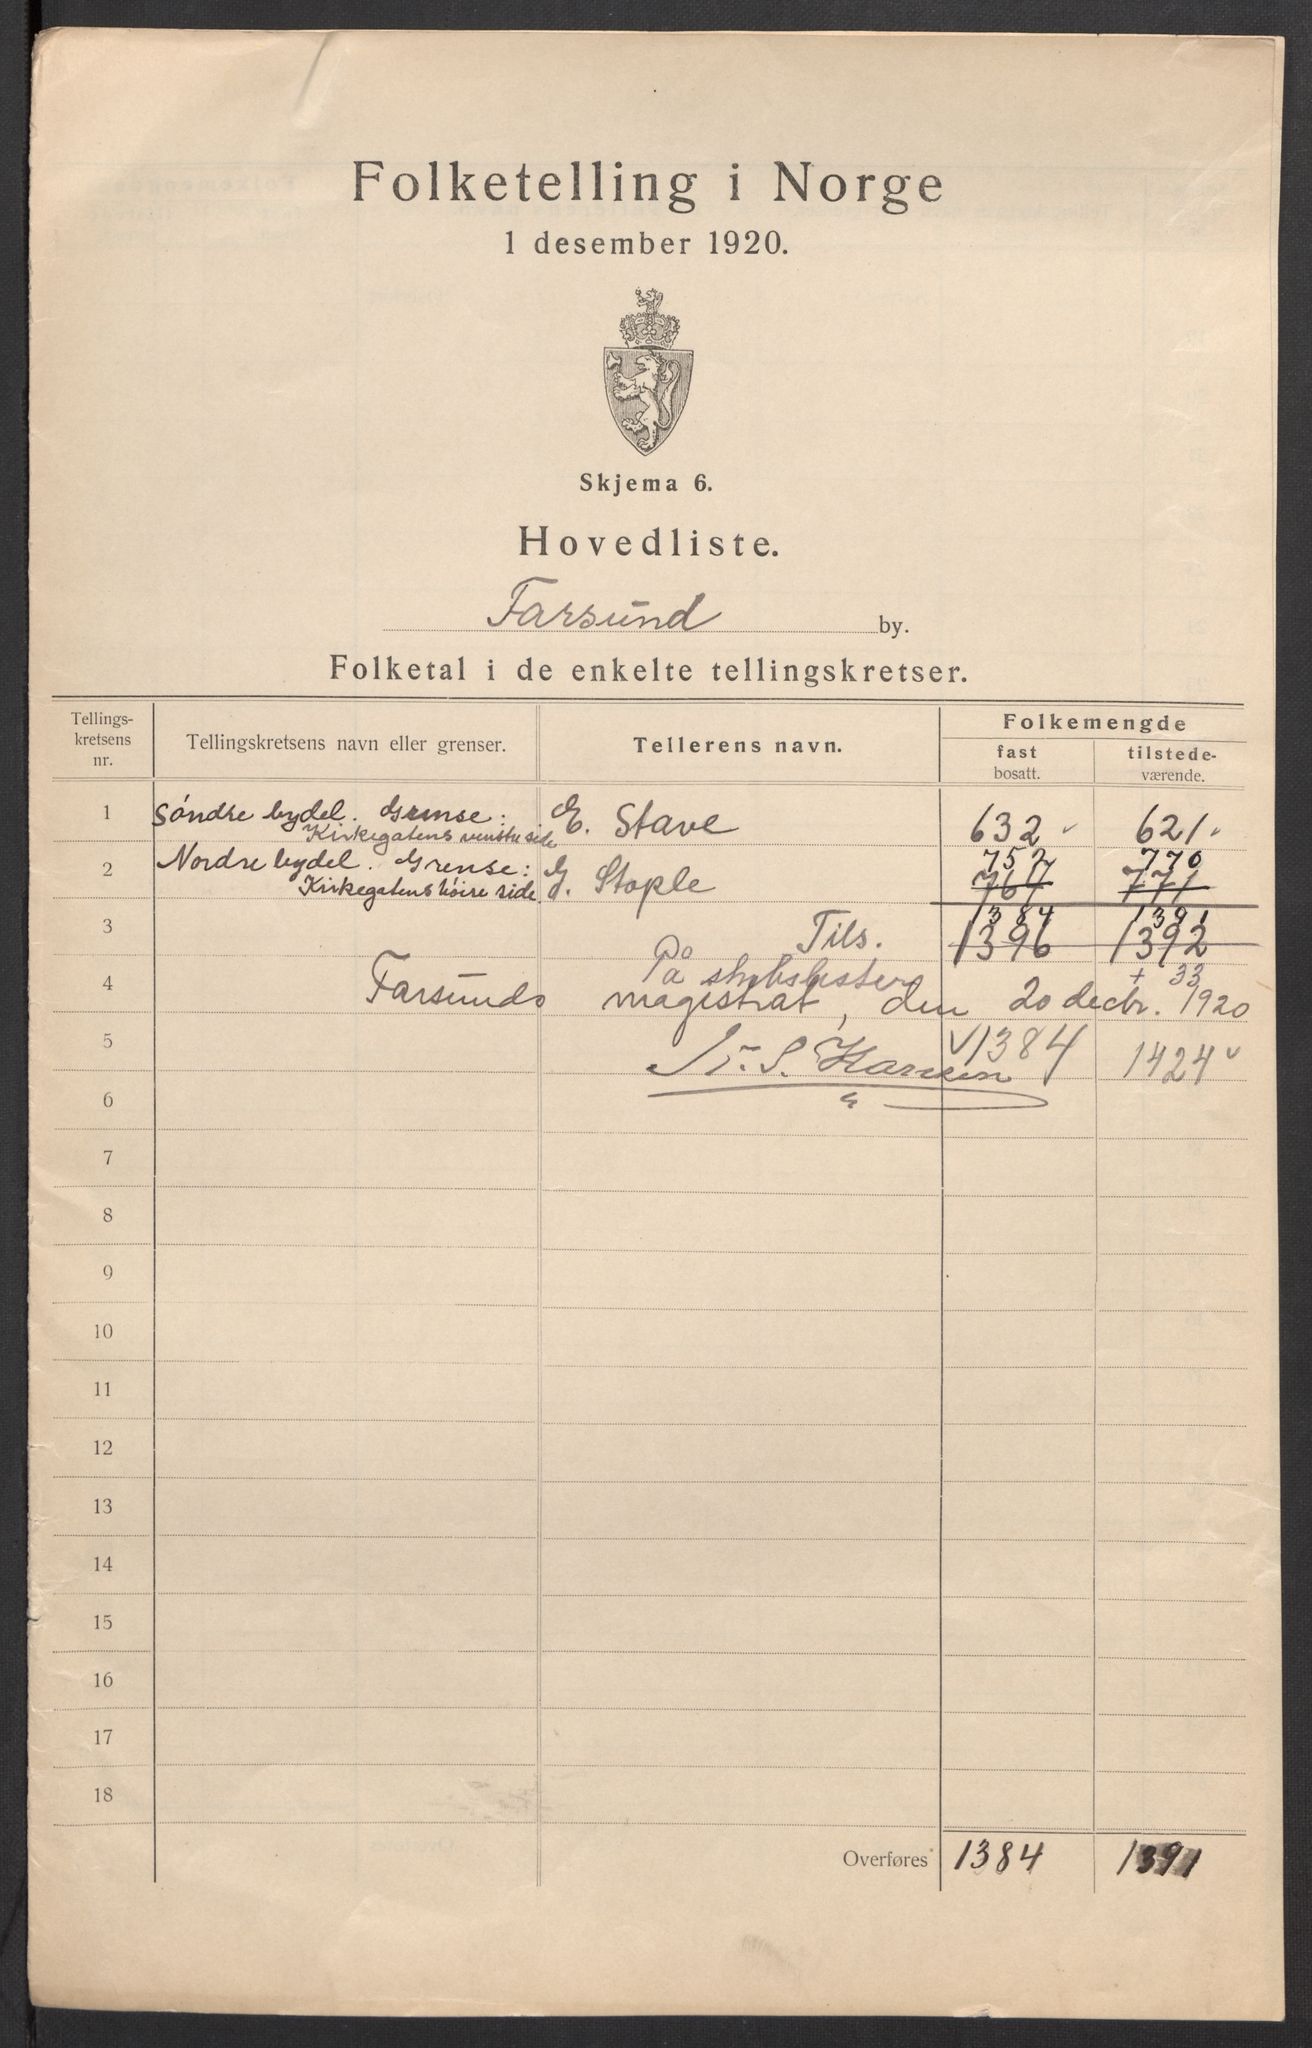 Folketelling i Norge
1 desember 1920.
Skjema 6.
Hovedliste.
Farsund by.
Folketal i de enkelte tellingskretser.
Tellings-kretsens nr. Tellingskretsens navn eller grenser. Tellerens navn. Folkemengde
fast bosatt. tilstede-værende.
1 Söndre bydel. Grense: E. Stave 632 621
Kirkegatens venstre side
752 770
2 Nordre bydel. Grense: G. Stople 764 771
Kirkegatens höire side
1384 1391
3 Tils. 1396 1392
På skibslister + 33
4 Farsunds magistrat, den 20 decbr. 1920
5 S. Hansen 1384 1424
6
7
8
9
10
11
12
13
14
15
16
17
18
Overføres 1384 1391